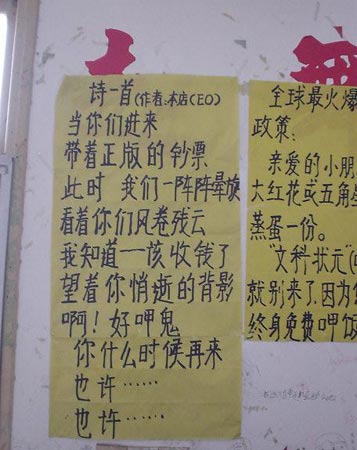 诗一首(作者:本店CEO)
当你们进来
带着正版的钞票
此时 我们一阵阵晕旋
看着你们风卷残云
我知道一该收钱了
望着你悄逝的背影
啊!好呷鬼
你什么时候再来
也许……
也许……
全球最火爆
政策:
亲爱的小朋
大红花或五角星
蒸蛋一份。
"文科状元"(
就别来了,因为
终身免费呷饭